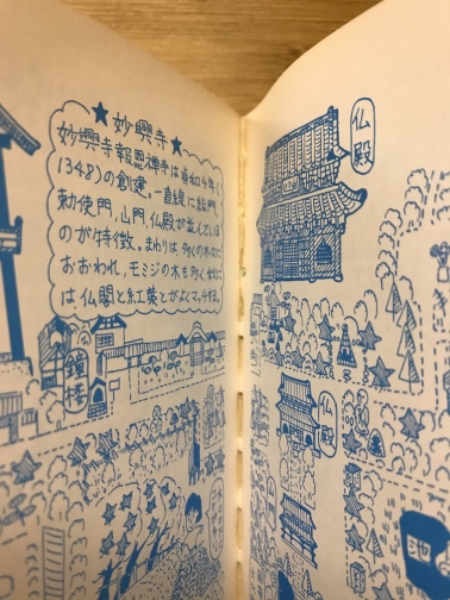 ★妙興寺★
妙興寺報恩禅寺は貞和4年(
1348)の創建。一直線に総門、
勅使門、山門、仏殿が並んでいる
のが特徴。まわりは、多くの木々に
おおわれ、モミジの木も多く、秋に
は仏閣と紅葉とがよくマッチする。
鐘楼
仏殿
仏殿
池